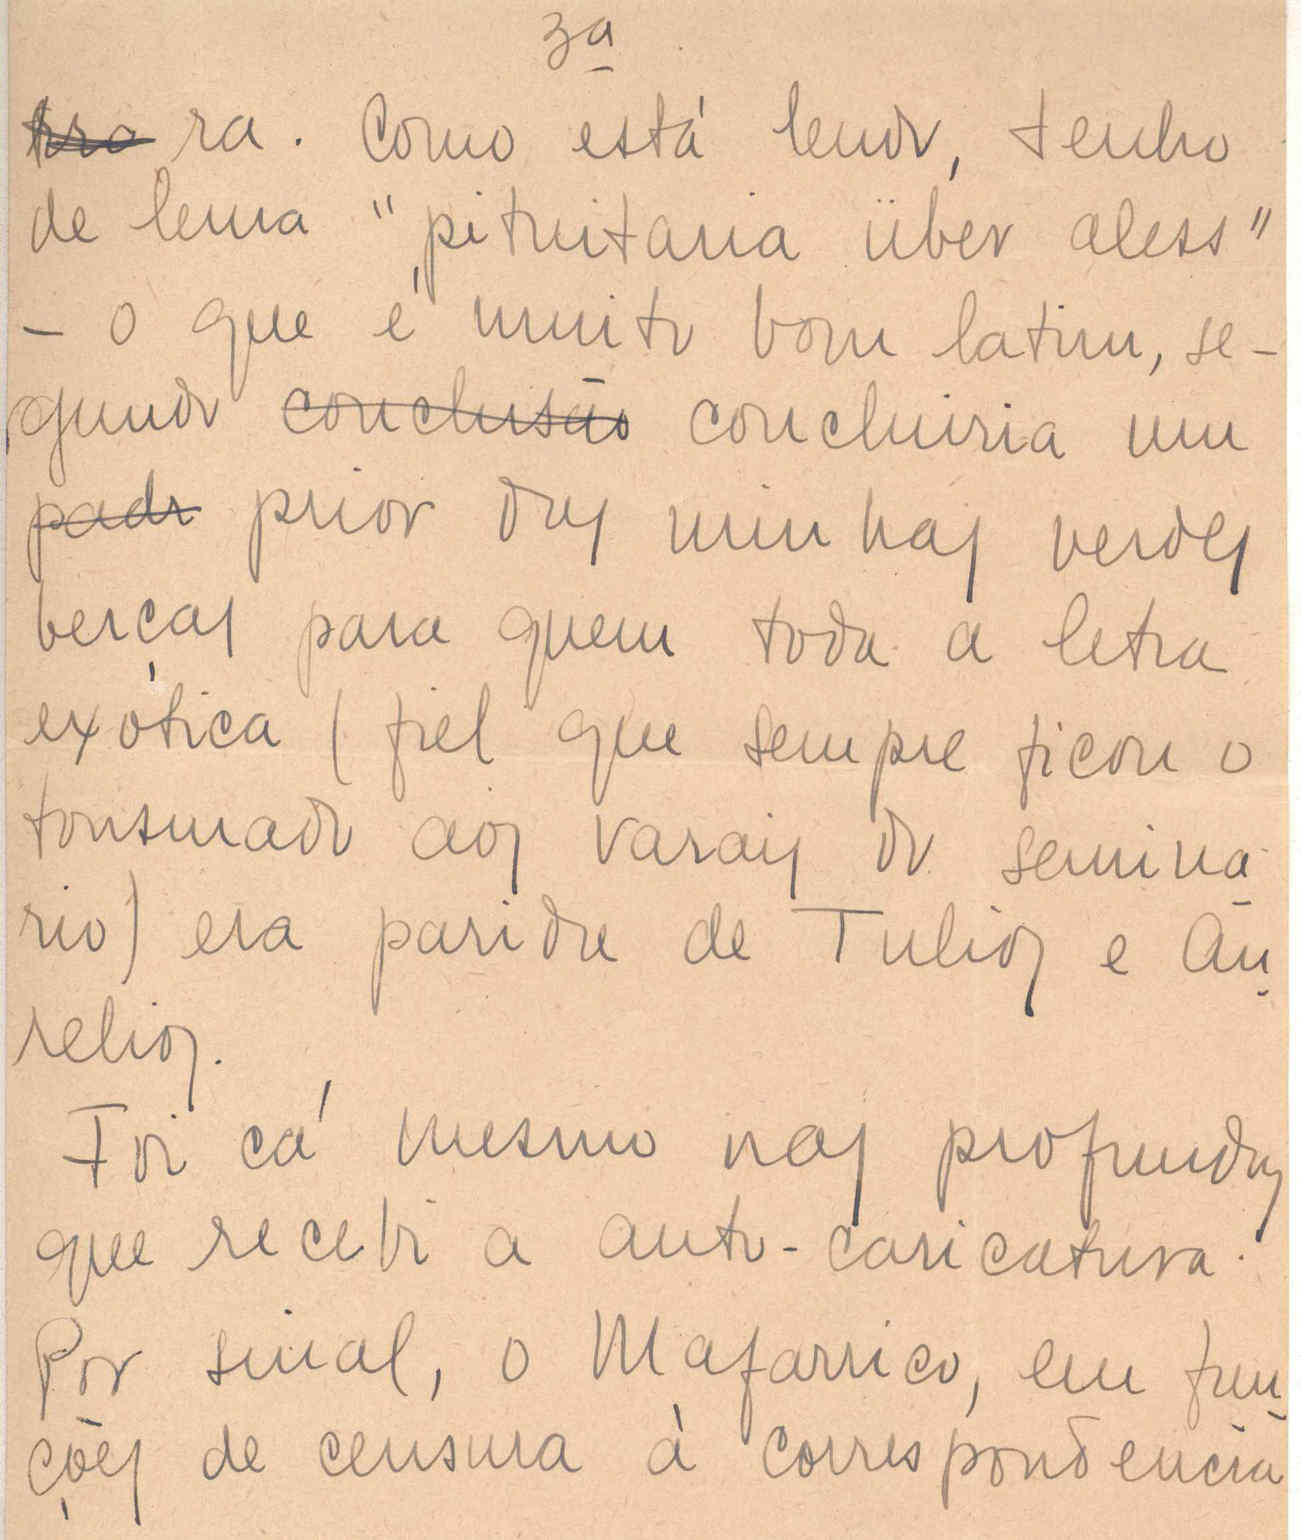 3ª
~~tra~~ ra. Como está lendo, tenho
de lema "pituitaria über aless"
— o que é muito bom latim, se-
gundo ~~conclusão~~ concluiria um
~~padr~~ prior das minhas verdes
berças para quem toda a letra
exótica (fiel que sempre ficou o
tonsurado aos varais do seminá
rio) era paridu de Tulios e Au
relios.
Foi cá mesmo nas profundas
que recebi a auto-caricatura.
Por sinal, o Mafarrico, em fun
ções de censura à correspondência